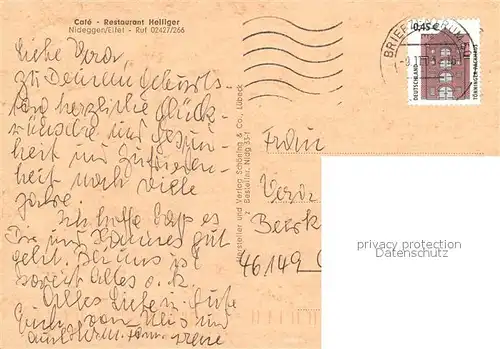 Café - Restaurant Heiliger
Nideggen/Eifel - Ruf 02427/266
Liebe Vera,
zu Deinem Geburts-
tag herzliche Glück-
wünsche und Gesund-
heit und Zufrieden-
heit noch viele
Jahre.
Ich hoffe daß es
Dir und Hannes gut
geht. Bei uns ist
soweit alles o.k.
Alles Liebe u. Gute
Euch von und
Hersteller und Verlag Schöning & Co., Lübeck
Bestellnr. Nideg 33-1
0,45 €
DEUTSCHLAND
TÖNNINGER PACKHAUS
BRIEFZENTRUM
Frau
Vera
46149
privacy protection
www.akpool.de